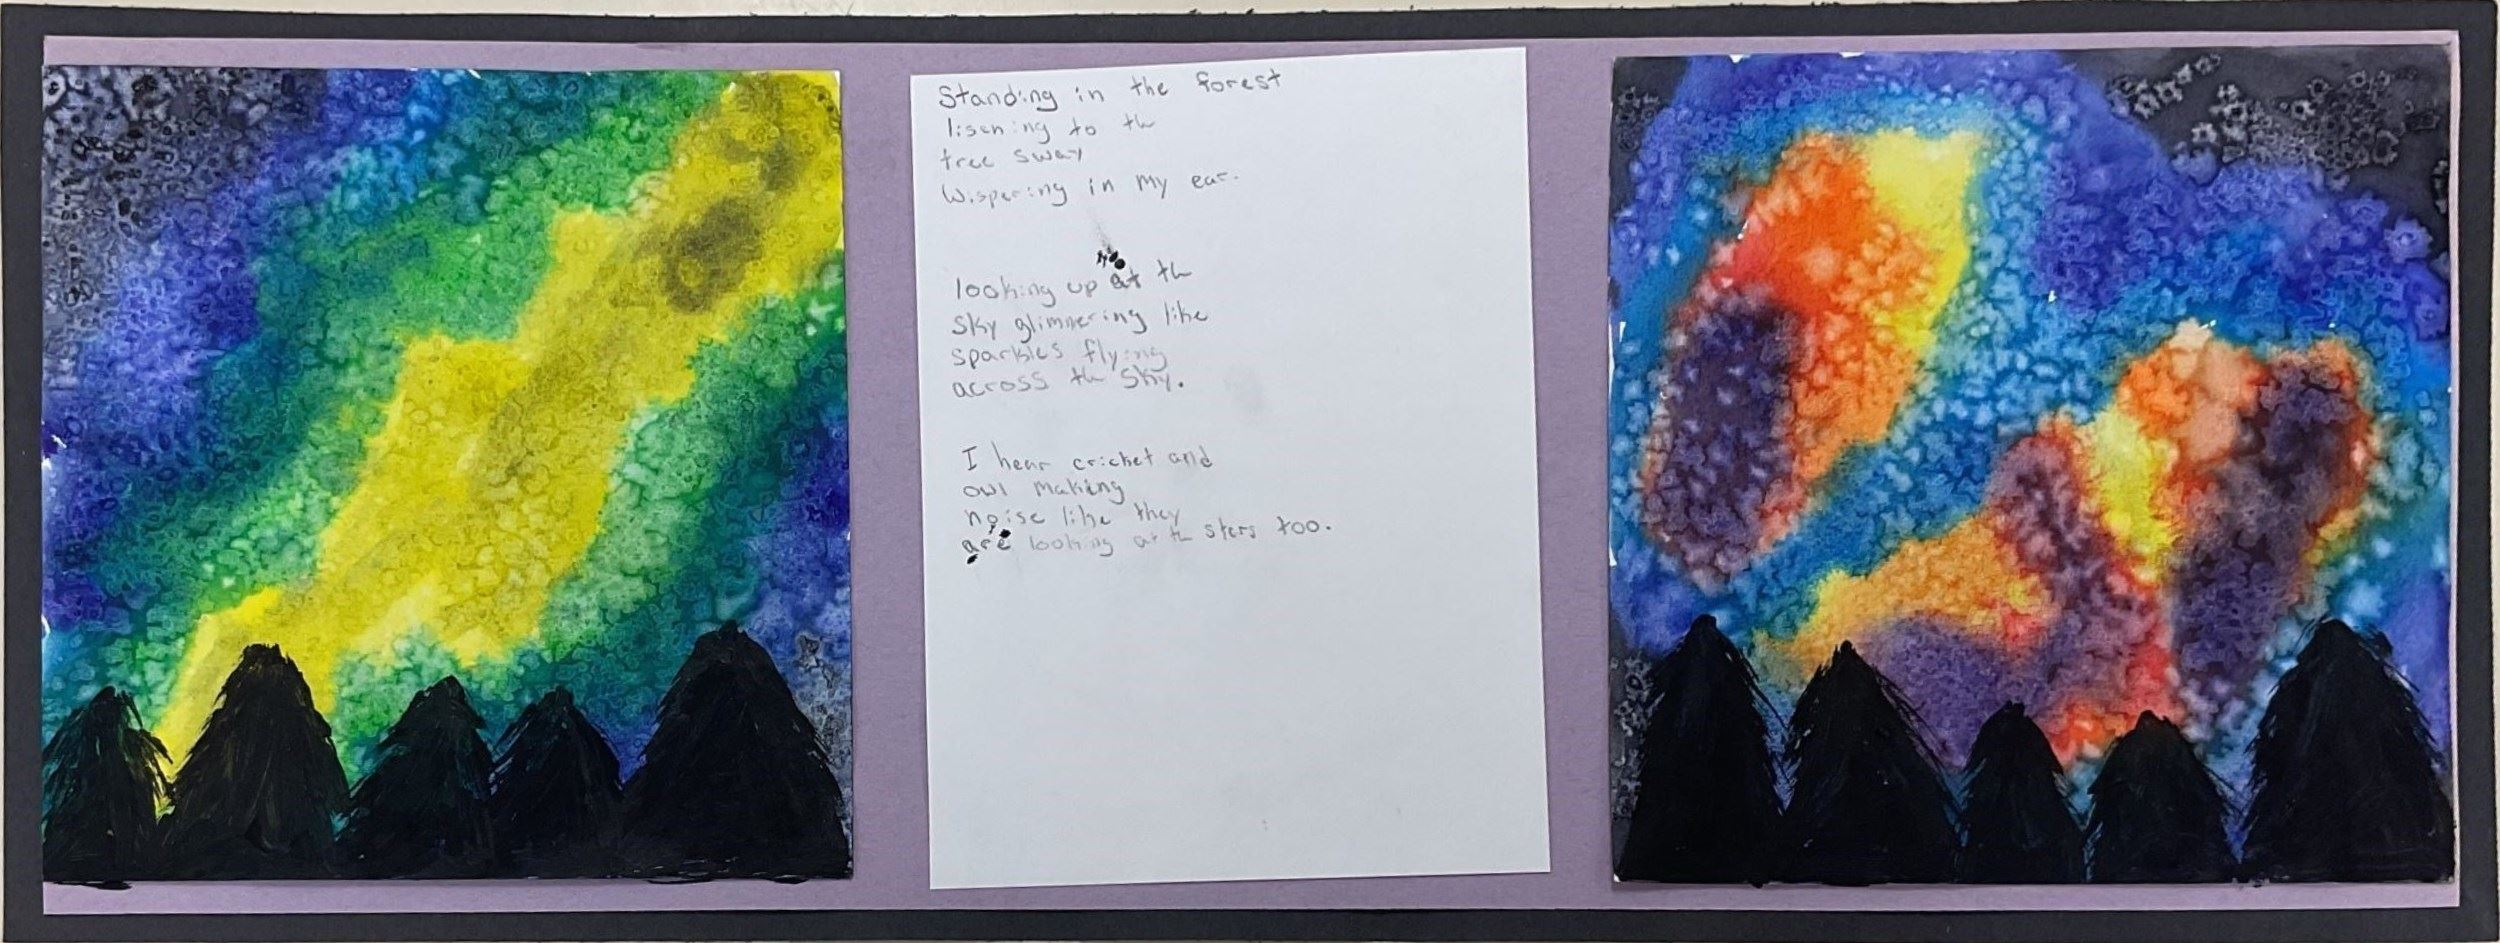 Standing in the forest
lisening to th
tree sway
Wispering in my ear.
looking up at th
sky glimmering like
sparkles flying
across th sky.
I hear cricket and
owl making
noise like they
are looking at th sters too.